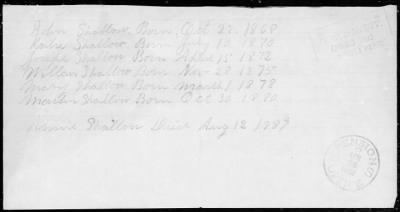 John Shallow Born Oct 22. 1868
Katie Shallow Born July 10 1870
Joseph Shallow Born 15 1872
William Shallow Born Nov 28 1875
Mary Shallow Born March 1 1878
Martin Shallow Born Oct 30 1880
Shallow Died Aug 12 1889
PENSIONS